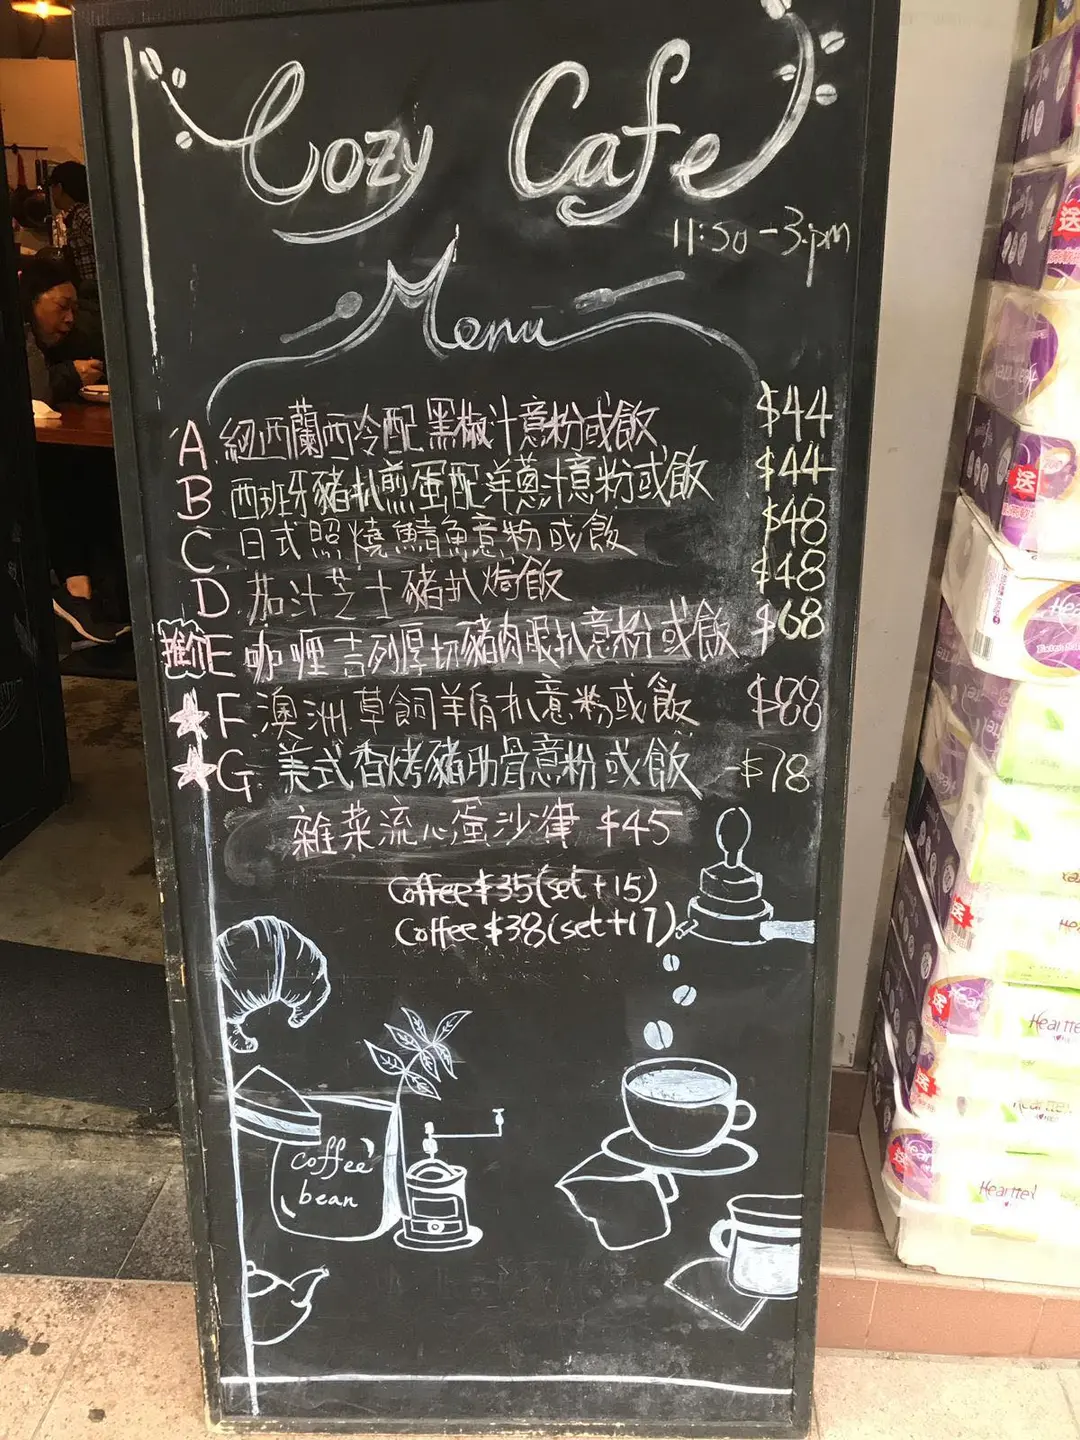 Cozy Cafe
11:30-3.pm
Menu
A 紐西蘭西冷配黑椒汁意粉或飯 $44
B 西班牙豬扒煎蛋配洋蔥汁意粉或飯 $44
C. 日式照燒鯖魚意粉或飯 $48
D 茄汁芝士豬扒焗飯 $48
推介 E 咖喱吉列厚切豬肉眼扒意粉或飯 $68
F 澳洲草飼羊肩扒意粉或飯 $88
G. 美式香烤豬肋骨意粉或飯 $78
雜菜流心蛋沙律 $45
Coffee $35(set+15)
Coffee $38(set+17)
coffee
bean
送
送
Hearttel